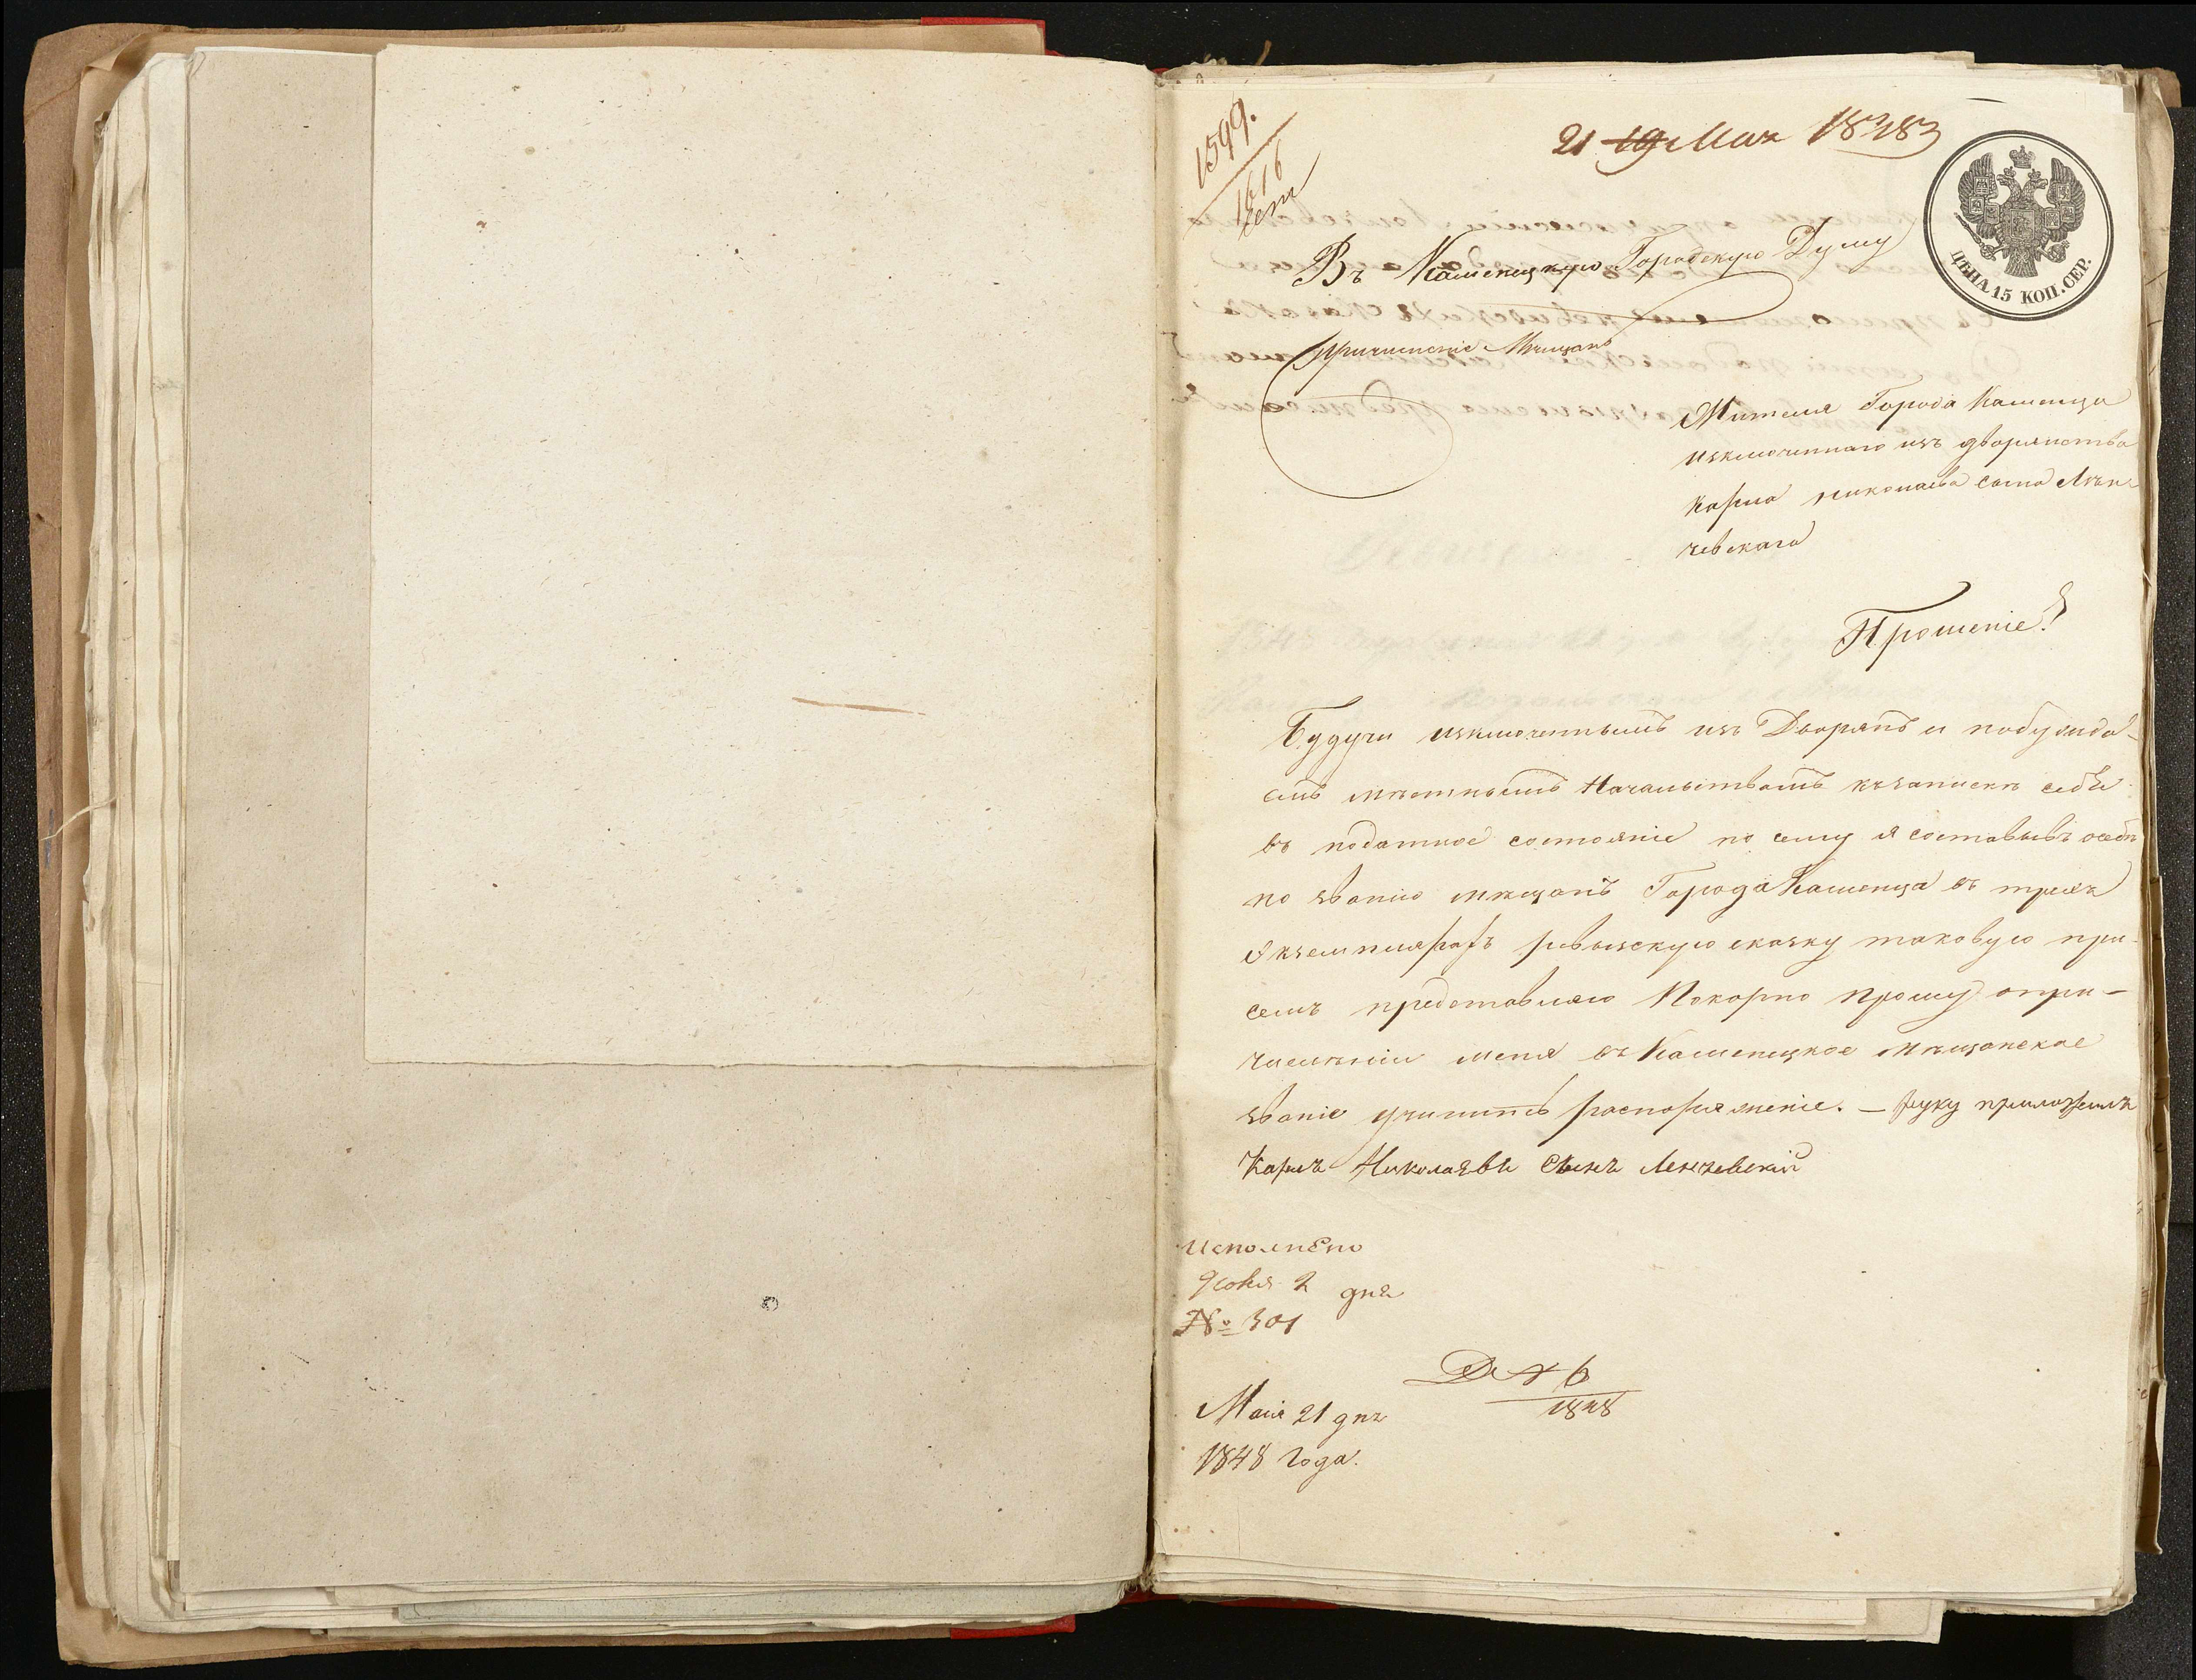 1599.
1616
21 19 Мая 1848
ЦѢНА 15 КОП. СЕР.
Въ Каменецкую Городскую Думу
причисленіе Мѣщанъ
Жителя Города Каменца
изключеннаго изъ дворянства
Карла Николаева сына Лѣн-
чевскаго
Прошеніе!
Будучи изключеннымъ изъ Дворянъ и побужда-
емъ мѣстнымъ Начальствомъ къ запискѣ себя
въ податное состояніе по сему я составывъ о себѣ
по званію мѣщанъ Города Каменца въ трехъ
Экземплярахъ ревызскую сказку таковую при
семъ представляю Покорно прошу опри-
численіи меня въ Каменецкое мѣщанское
званіе учинить распоряженіе. — Руку приложилъ
Карлъ Николаевъ Сынъ Ленчевскій
Исполнено
Іюня 2 дня
№ 301
1848
Маія 21 дня
1848 Года.